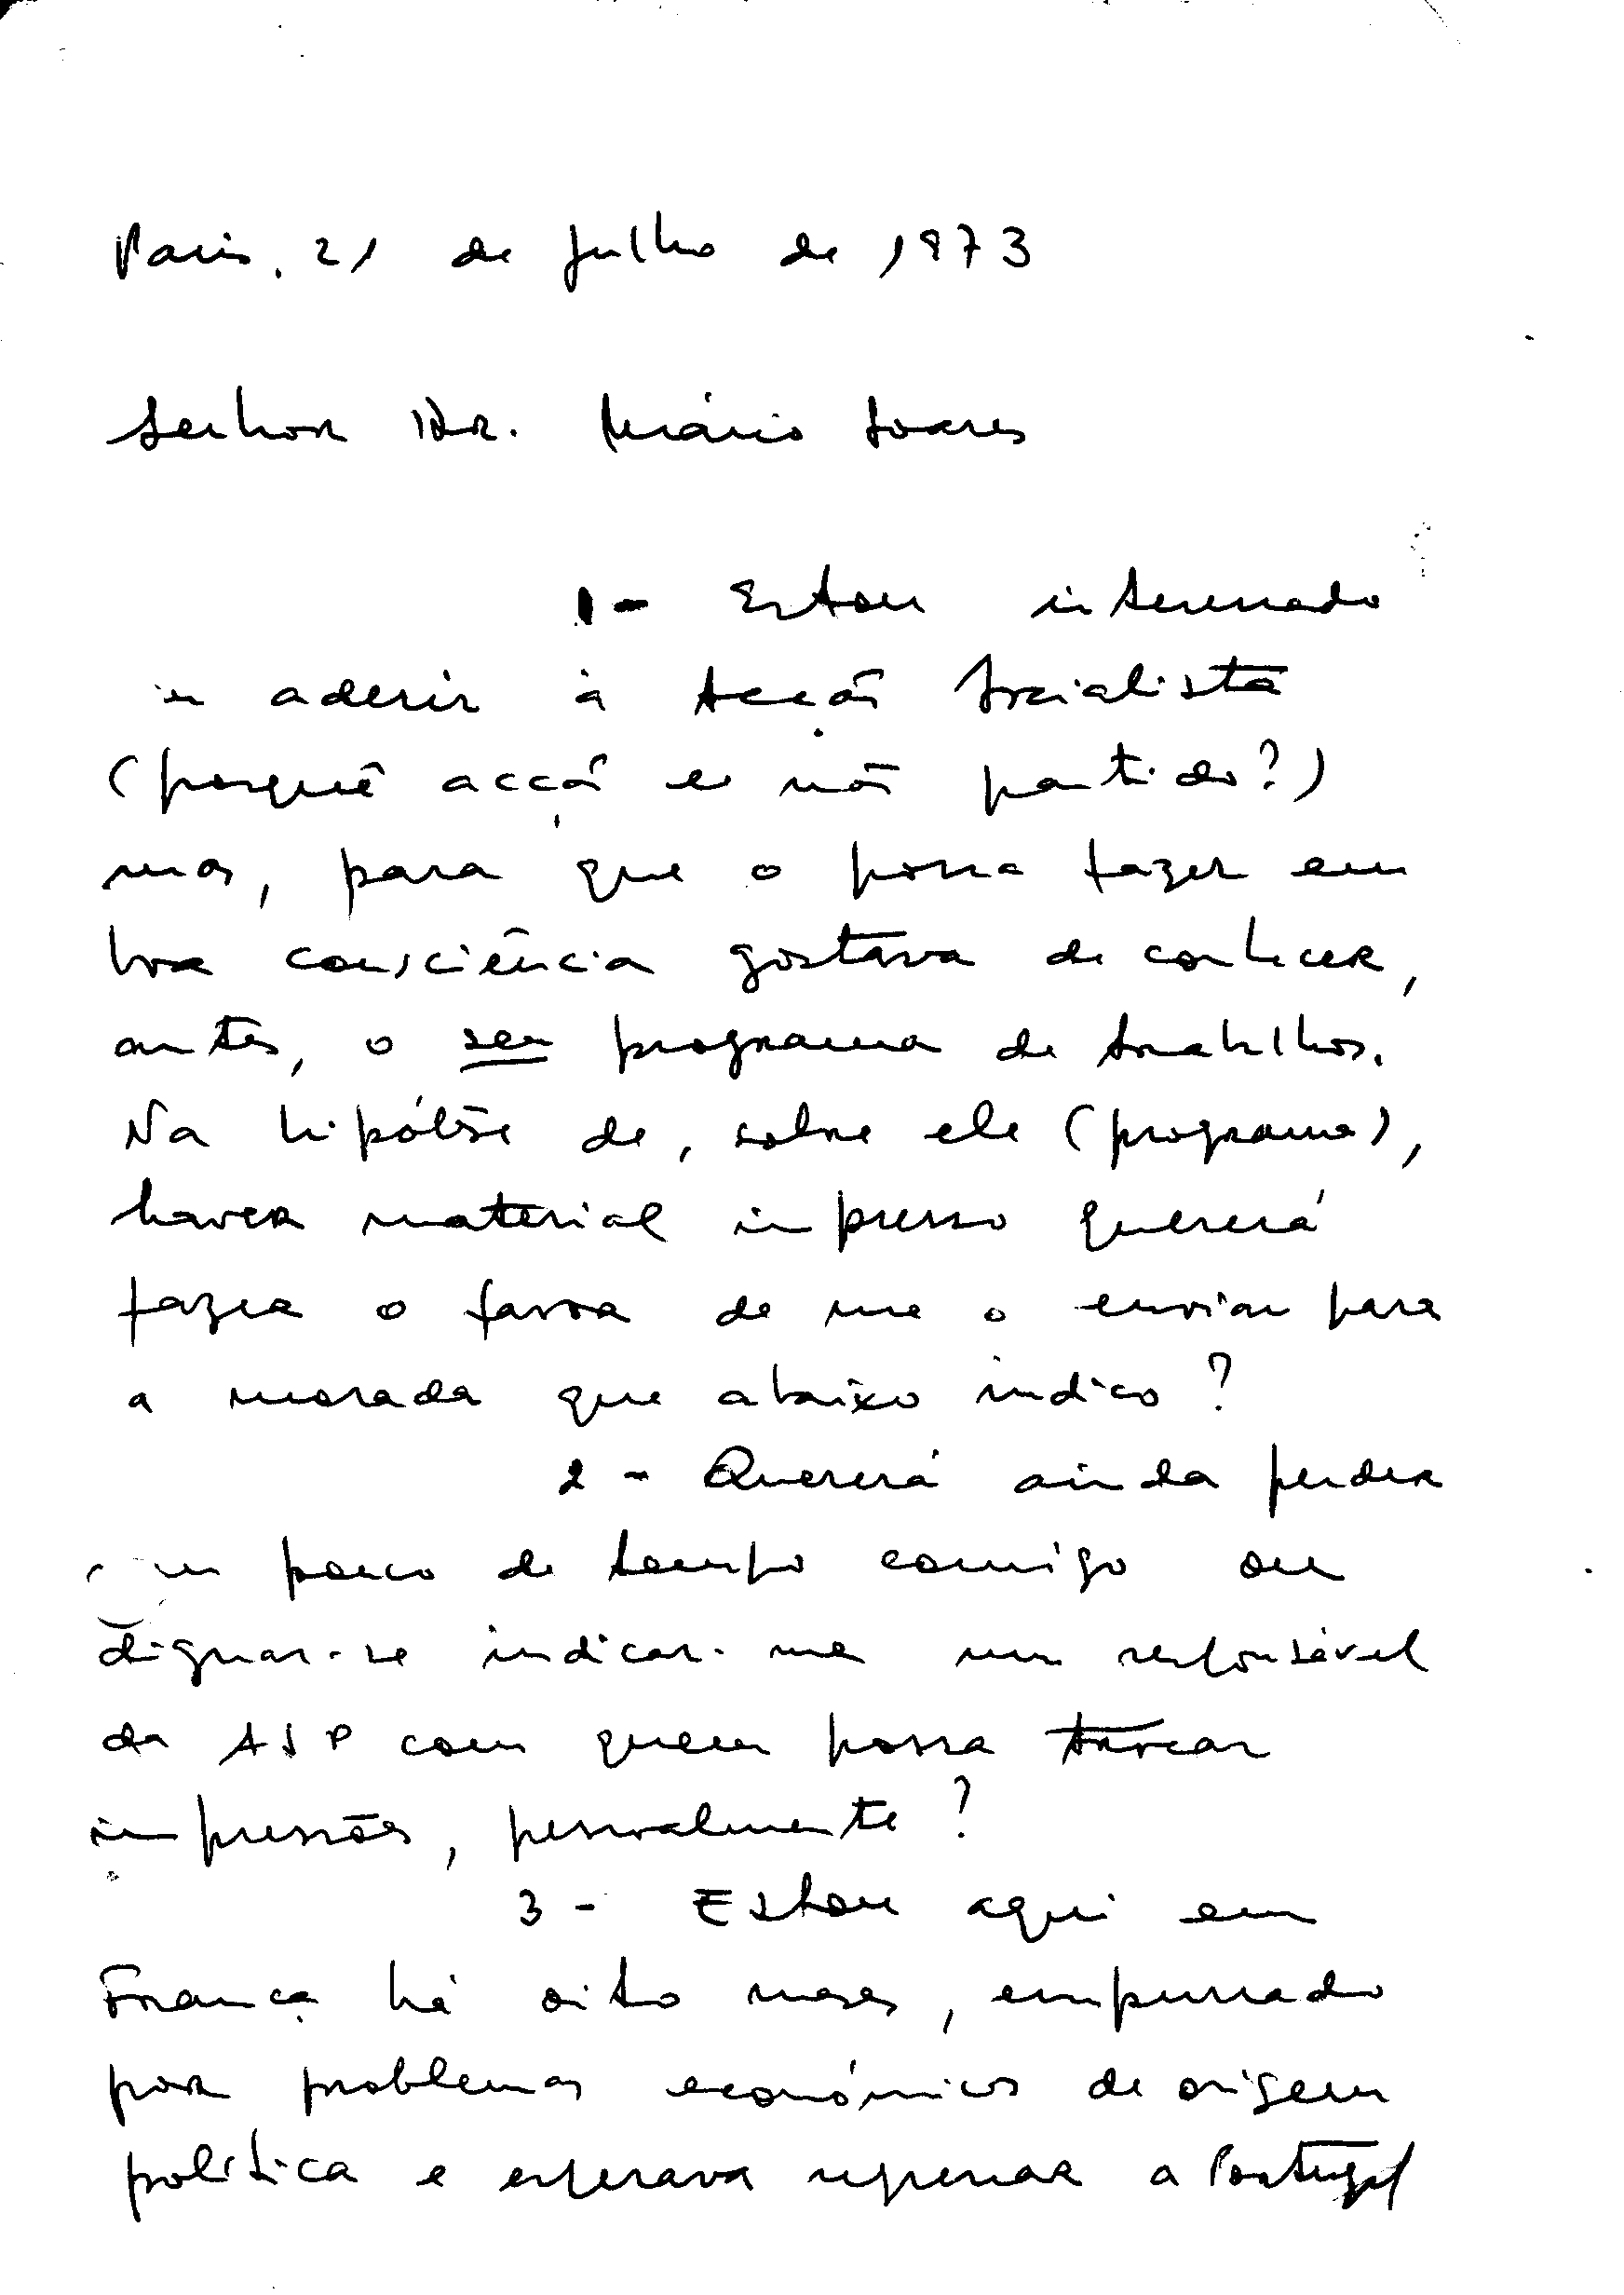 Paris, 21 de Julho de 1973
Senhor Dr. Mário Soares
1 - Estou interessado
em aderir à Acção Socialista
(porquê acção e não partido?)
mas, para que o possa fazer em
boa consciência gostava de conhecer,
antes, o seu programa de trabalhos.
Na hipótese de, sobre ele (programa),
haver material impresso quererá
fazer o favor de me o enviar para
a morada que abaixo indico?
2 - Quererá ainda perder
um pouco de tempo comigo ou
dignar-se indicar-me um responsável
da ASP com quem possa trocar
impressões, pessoalmente?
3 - Estou aqui em
França há oito meses, empurrado
por problemas económicos de origem
política e esperava regressar a Portugal